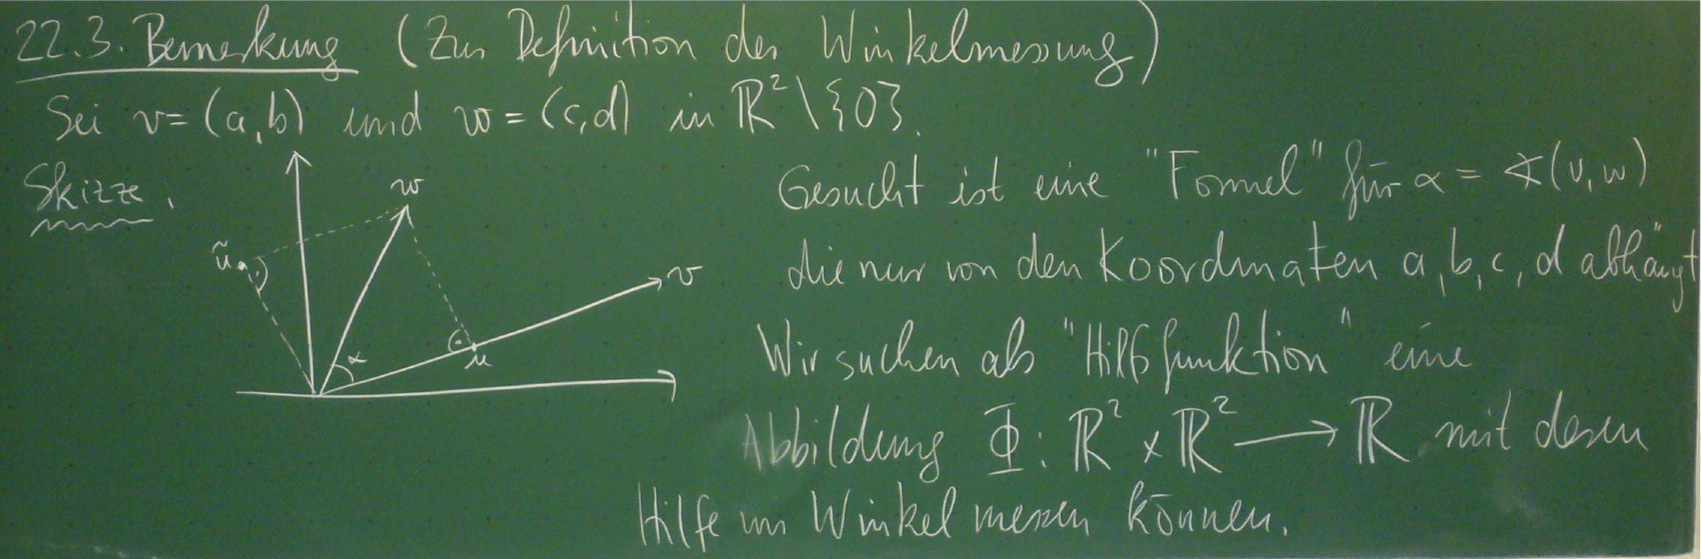 22.3. Bemerkung (Zur Definition der Winkelmessung)
Sei v=(a,b) und w=(c,d) in ℝ²\{0}.
Skizze.
w
ũ
v
α
u
Gesucht ist eine "Formel" für α = ∢(v,w)
die nur von den Koordinaten a,b,c,d abhängt
Wir suchen als "Hilfsfunktion" eine
Abbildung Φ: ℝ² × ℝ² ⟶ ℝ mit deren
Hilfe wir Winkel messen können.